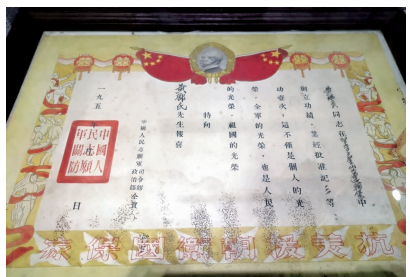 同志在
中
創立功績，業經批准記三等
功壹次，這不僅是個人的光
榮，全軍的光榮，也是人民
的光榮，祖國的光榮
特向
先生報喜
中國人民志願軍司令部
政治部仝賀
一九五
日
中國人
民志願
軍關防
抗美援朝衛國保家